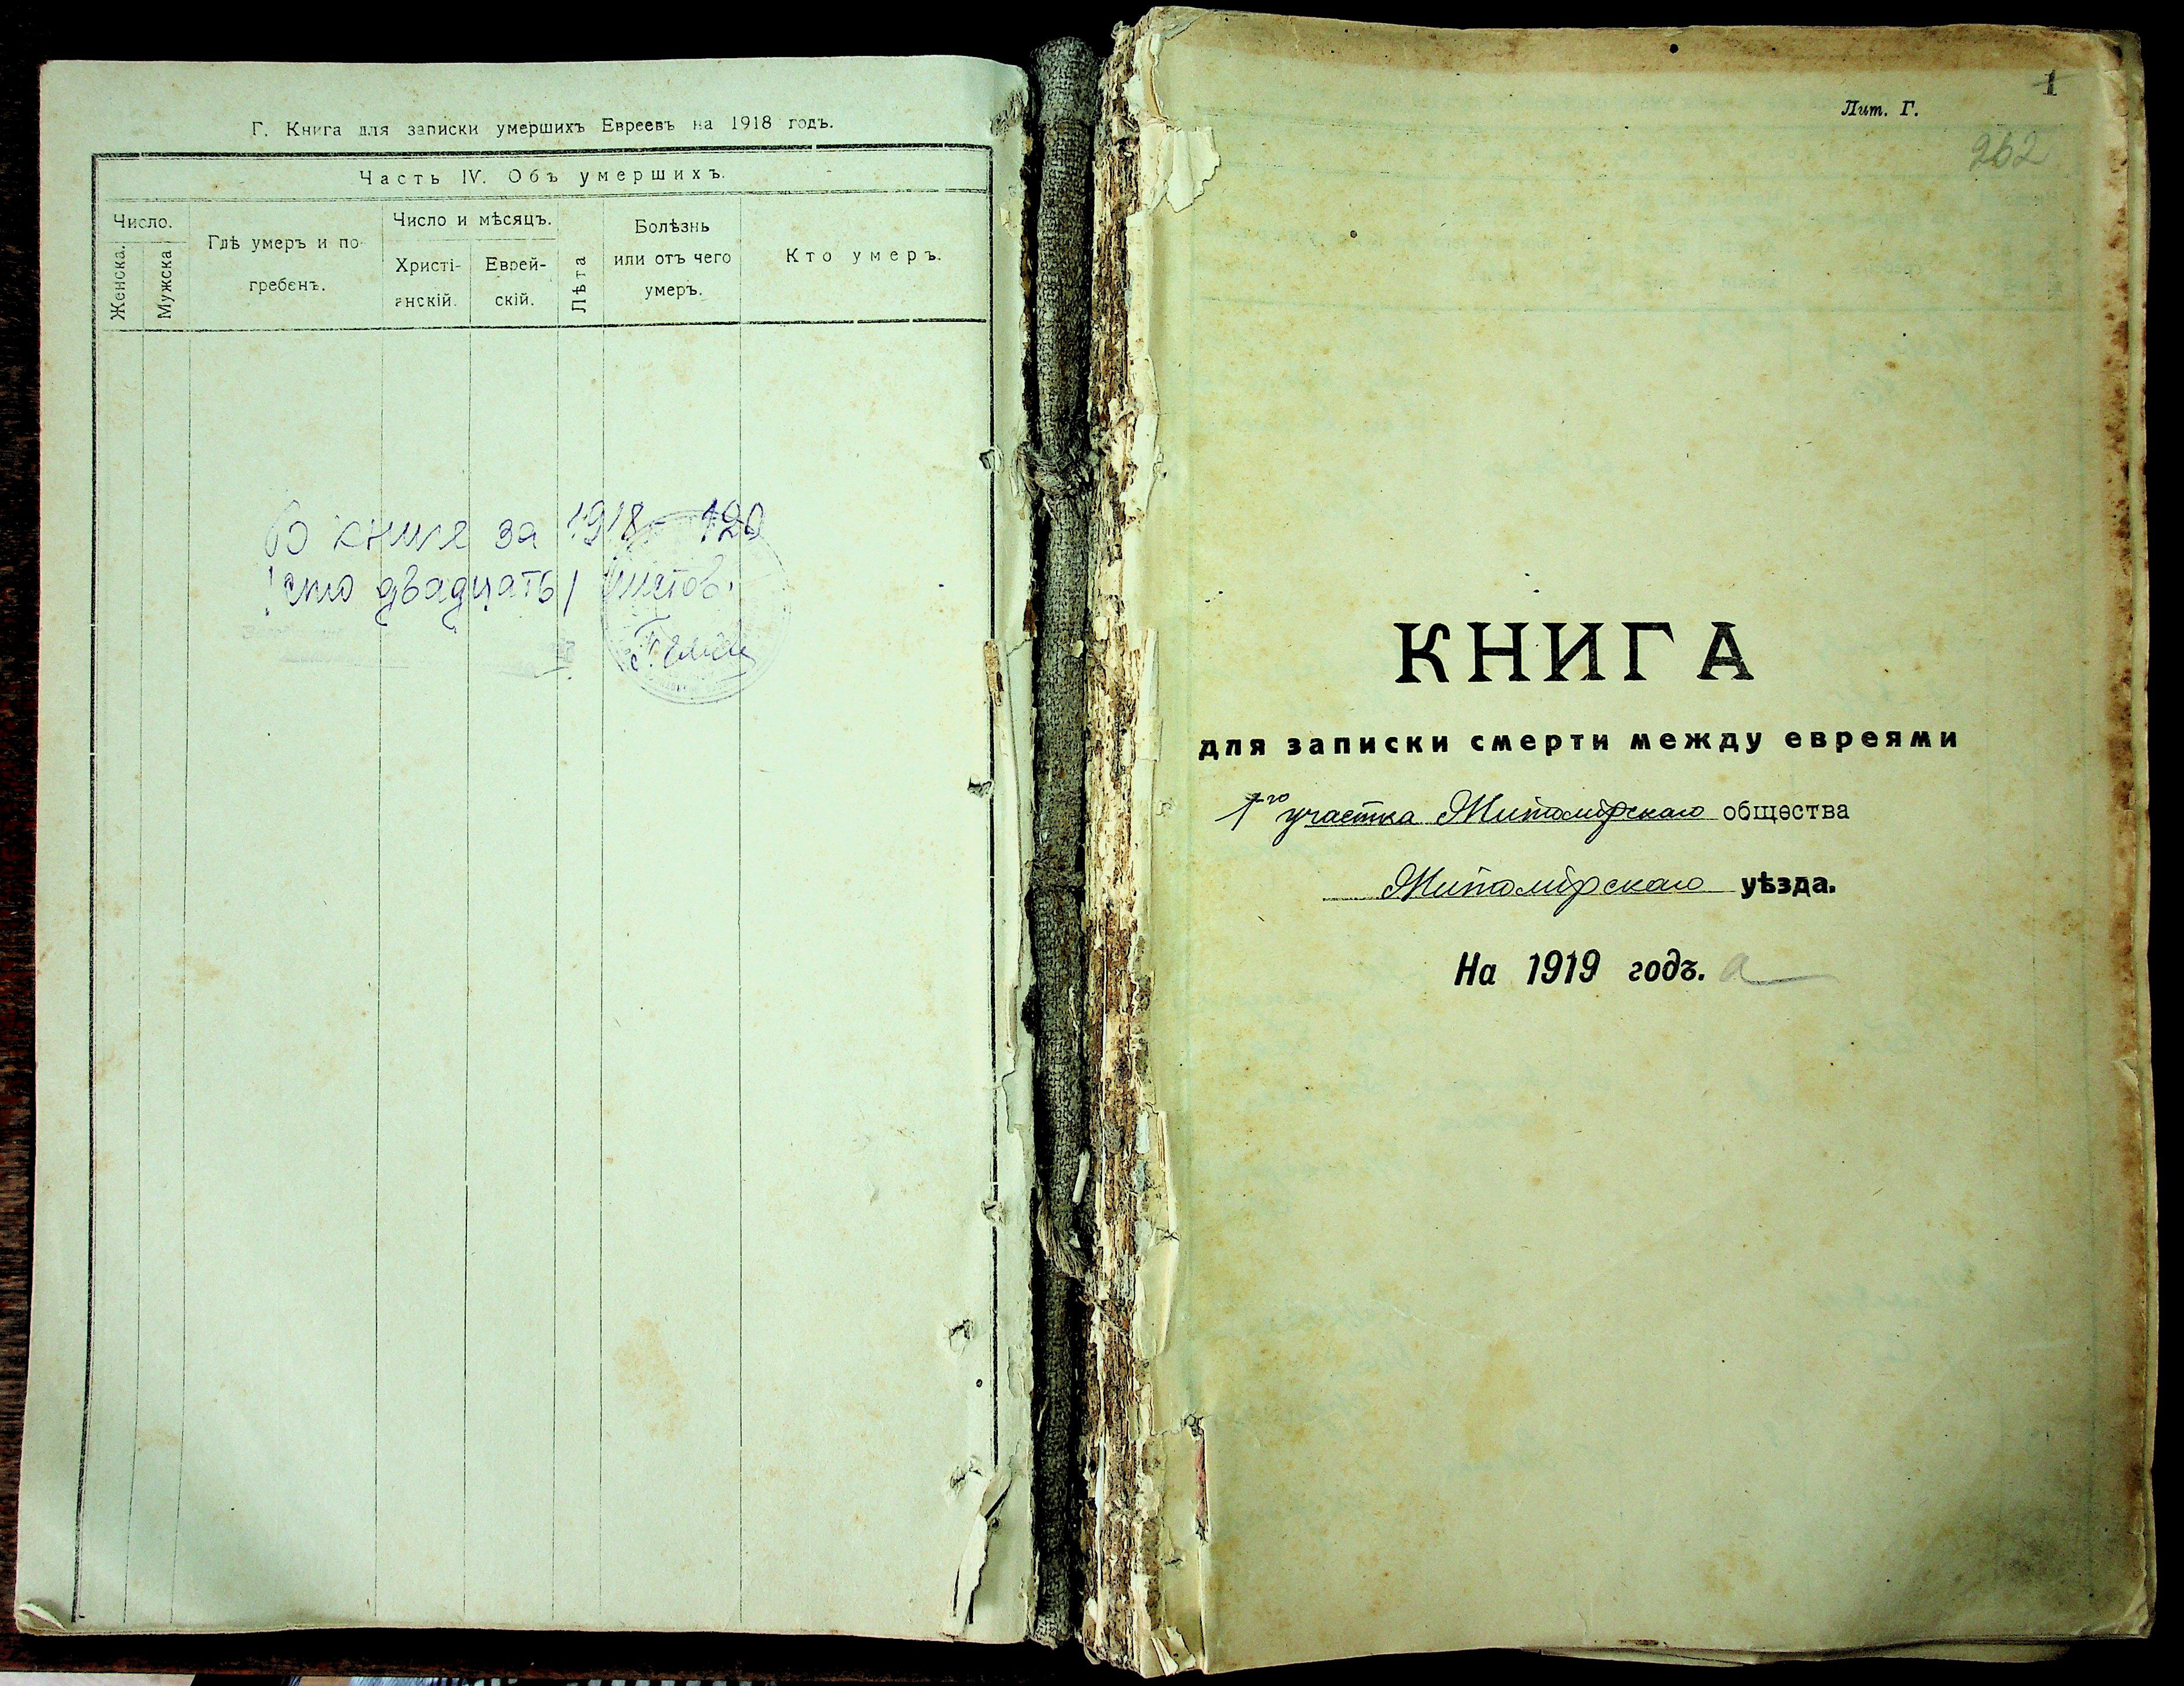 Г. Книга для записки умершихъ Евреевъ на 1918 годъ.
Часть IV. Объ умершихъ.
Число.
Женска.
Мужска
Гдѣ умеръ и по-
гребенъ.
Число и мѣсяцъ.
Христі-
анскій.
Еврей-
скій.
Лѣта
Болѣзнь
или отъ чего
умеръ.
Кто умеръ.
В книге за 1918 – 120
/сто двадцать/ листов.
1
Лит. Г.
262
КНИГА
для записки смерти между евреями
1го участка Житомірскаго общества
Житомірскаго уѣзда.
На 1919 годъ. а